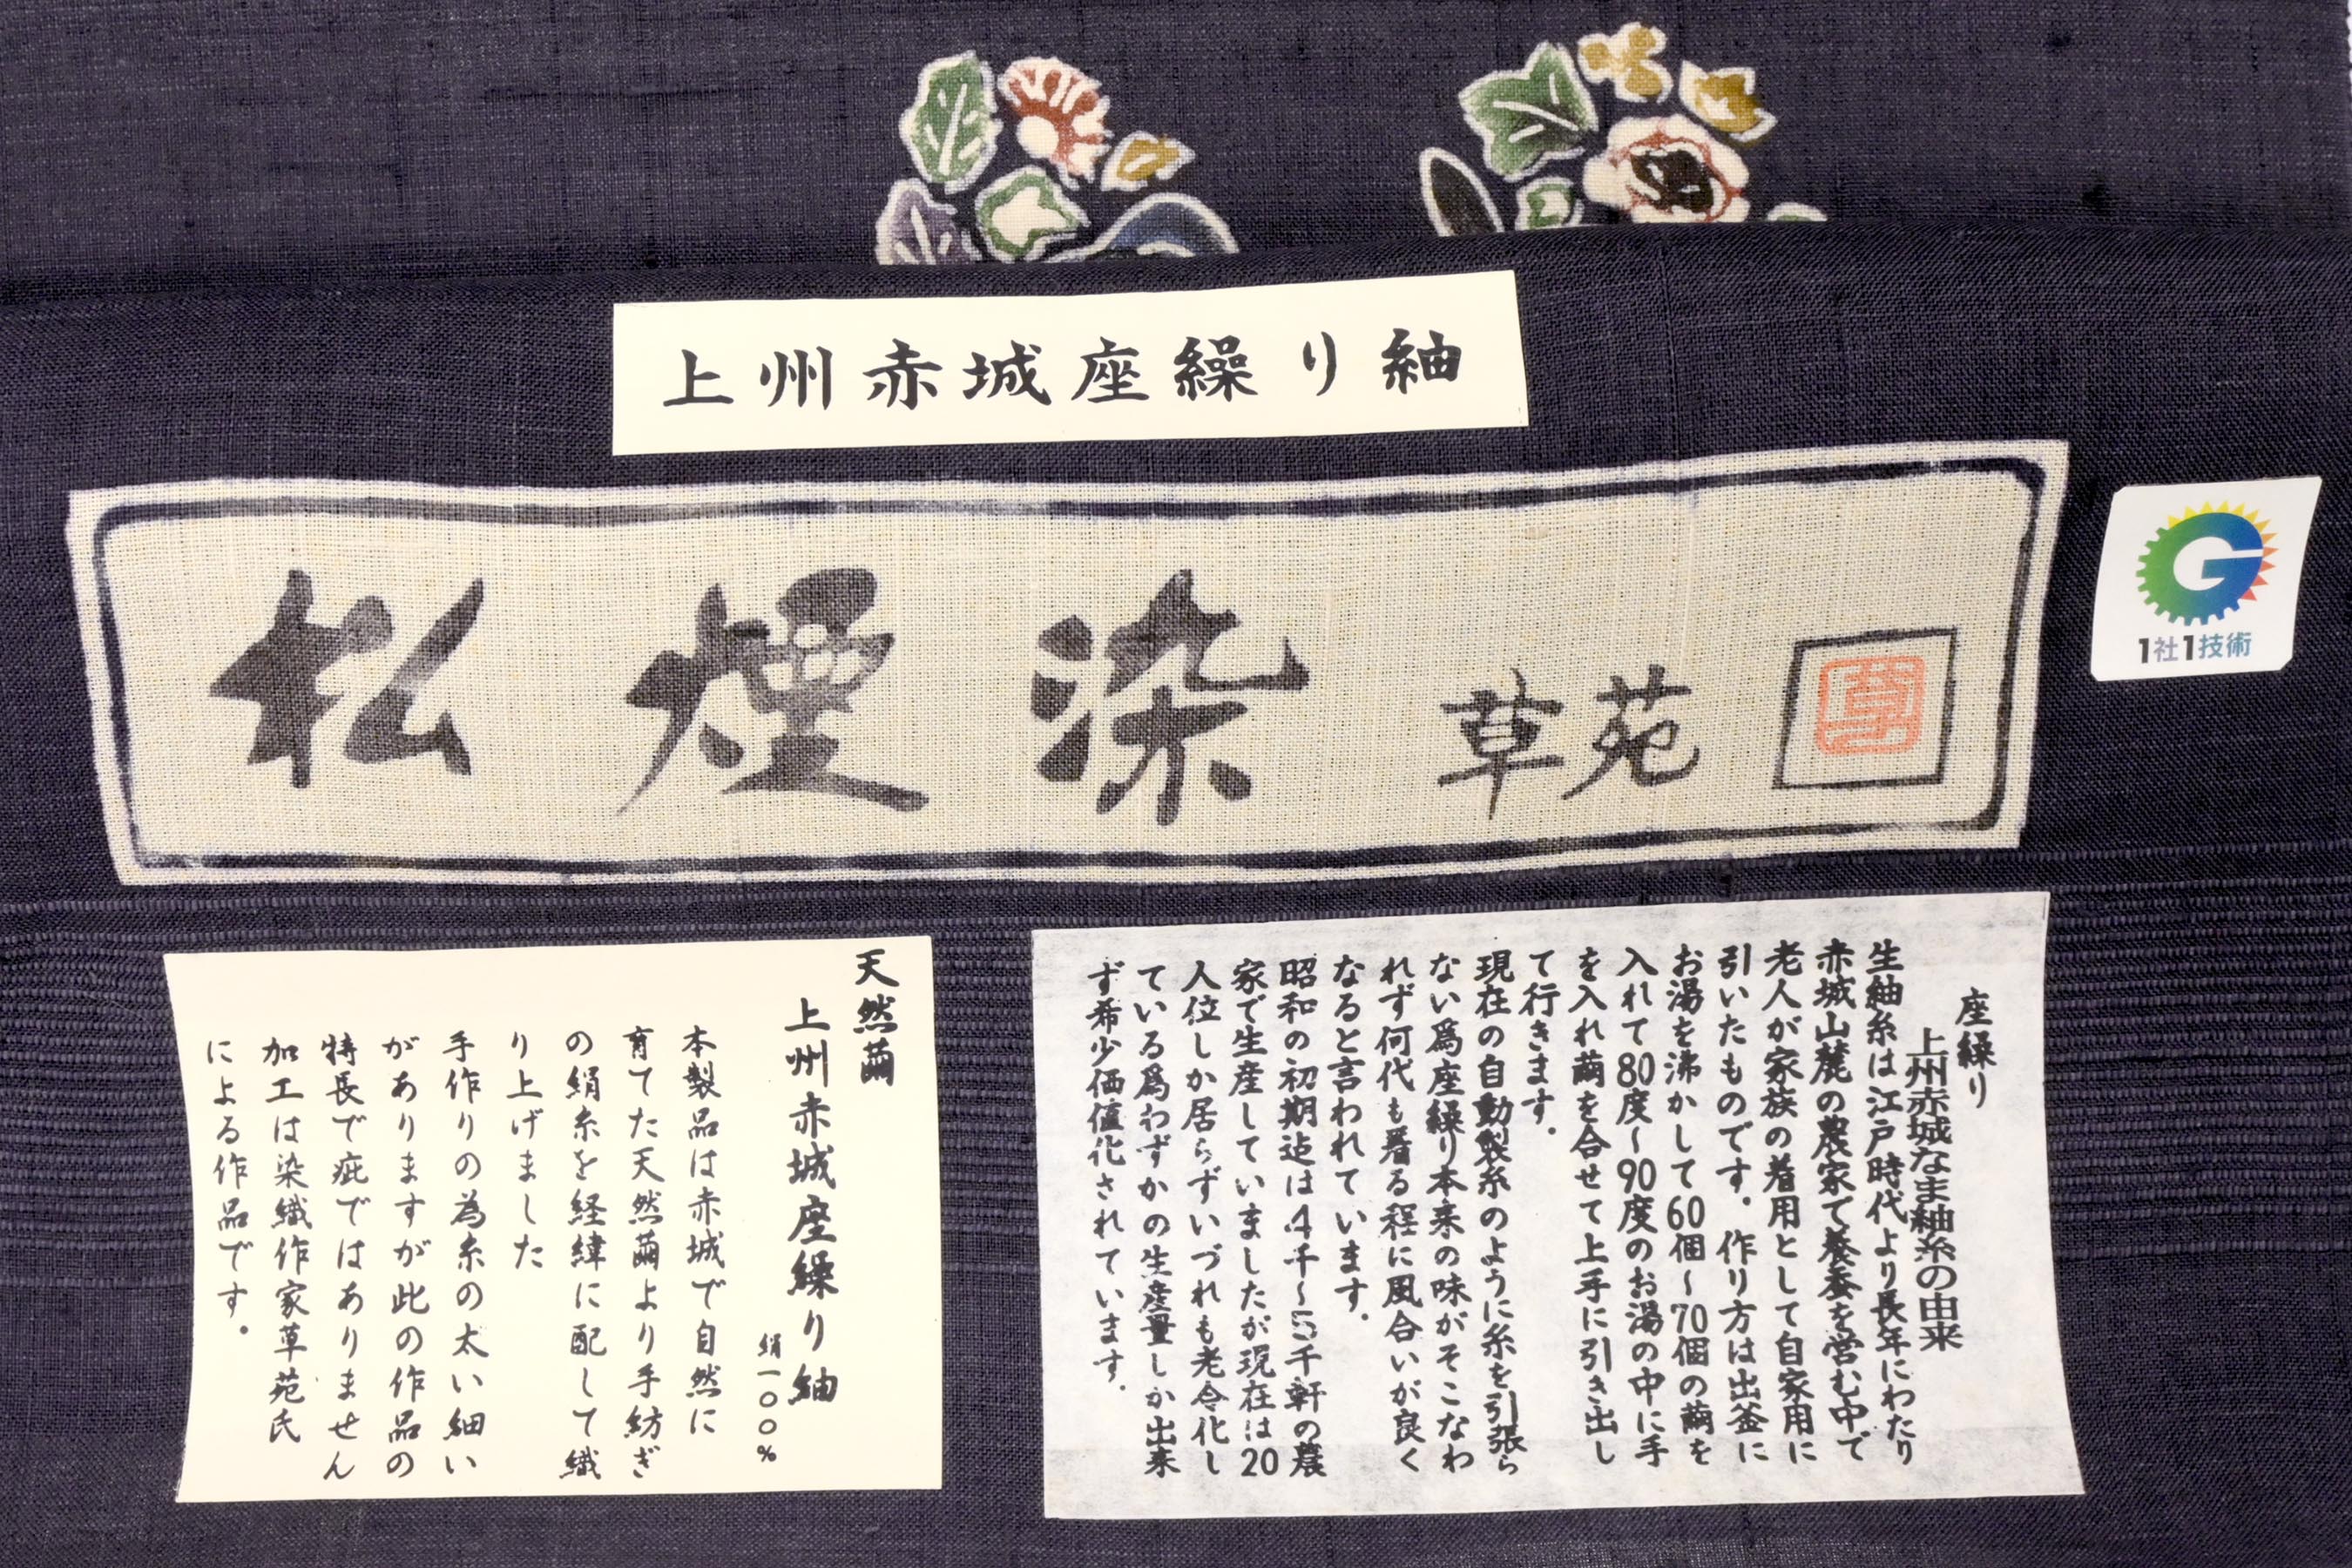 上州赤城座繰り紬
松煙染 草苑
1社1技術
座繰り
上州赤城なま紬糸の由来
生紬糸は江戸時代より長年にわたり
赤城山麓の農家で養蚕を営む中で
老人が家族の着用として自家用に
引いたものです。作り方は出釜に
お湯を沸かして60個~70個の繭を
入れて80度~90度のお湯の中に手
を入れ繭を合せて上手に引き出し
て行きます。
現在の自動製糸のように糸を引張ら
ない爲座繰り本来の味がそこなわ
れず何代も着る程に風合いが良く
なると言われています。
昭和の初期迄は4千~5千軒の農
家で生産していましたが現在は20
人位しか居らずいづれも老令化し
ている爲わずかの生産量しか出来
ず希少価値化されています。
天然繭
上州赤城座繰り紬
絹一〇〇%
本製品は赤城で自然に
育てた天然繭より手紡ぎ
の絹糸を経緯に配して織
り上げました
手作りの為糸の太い細い
がありますが此の作品の
特長で疵ではありません
加工は染織作家草苑氏
による作品です。